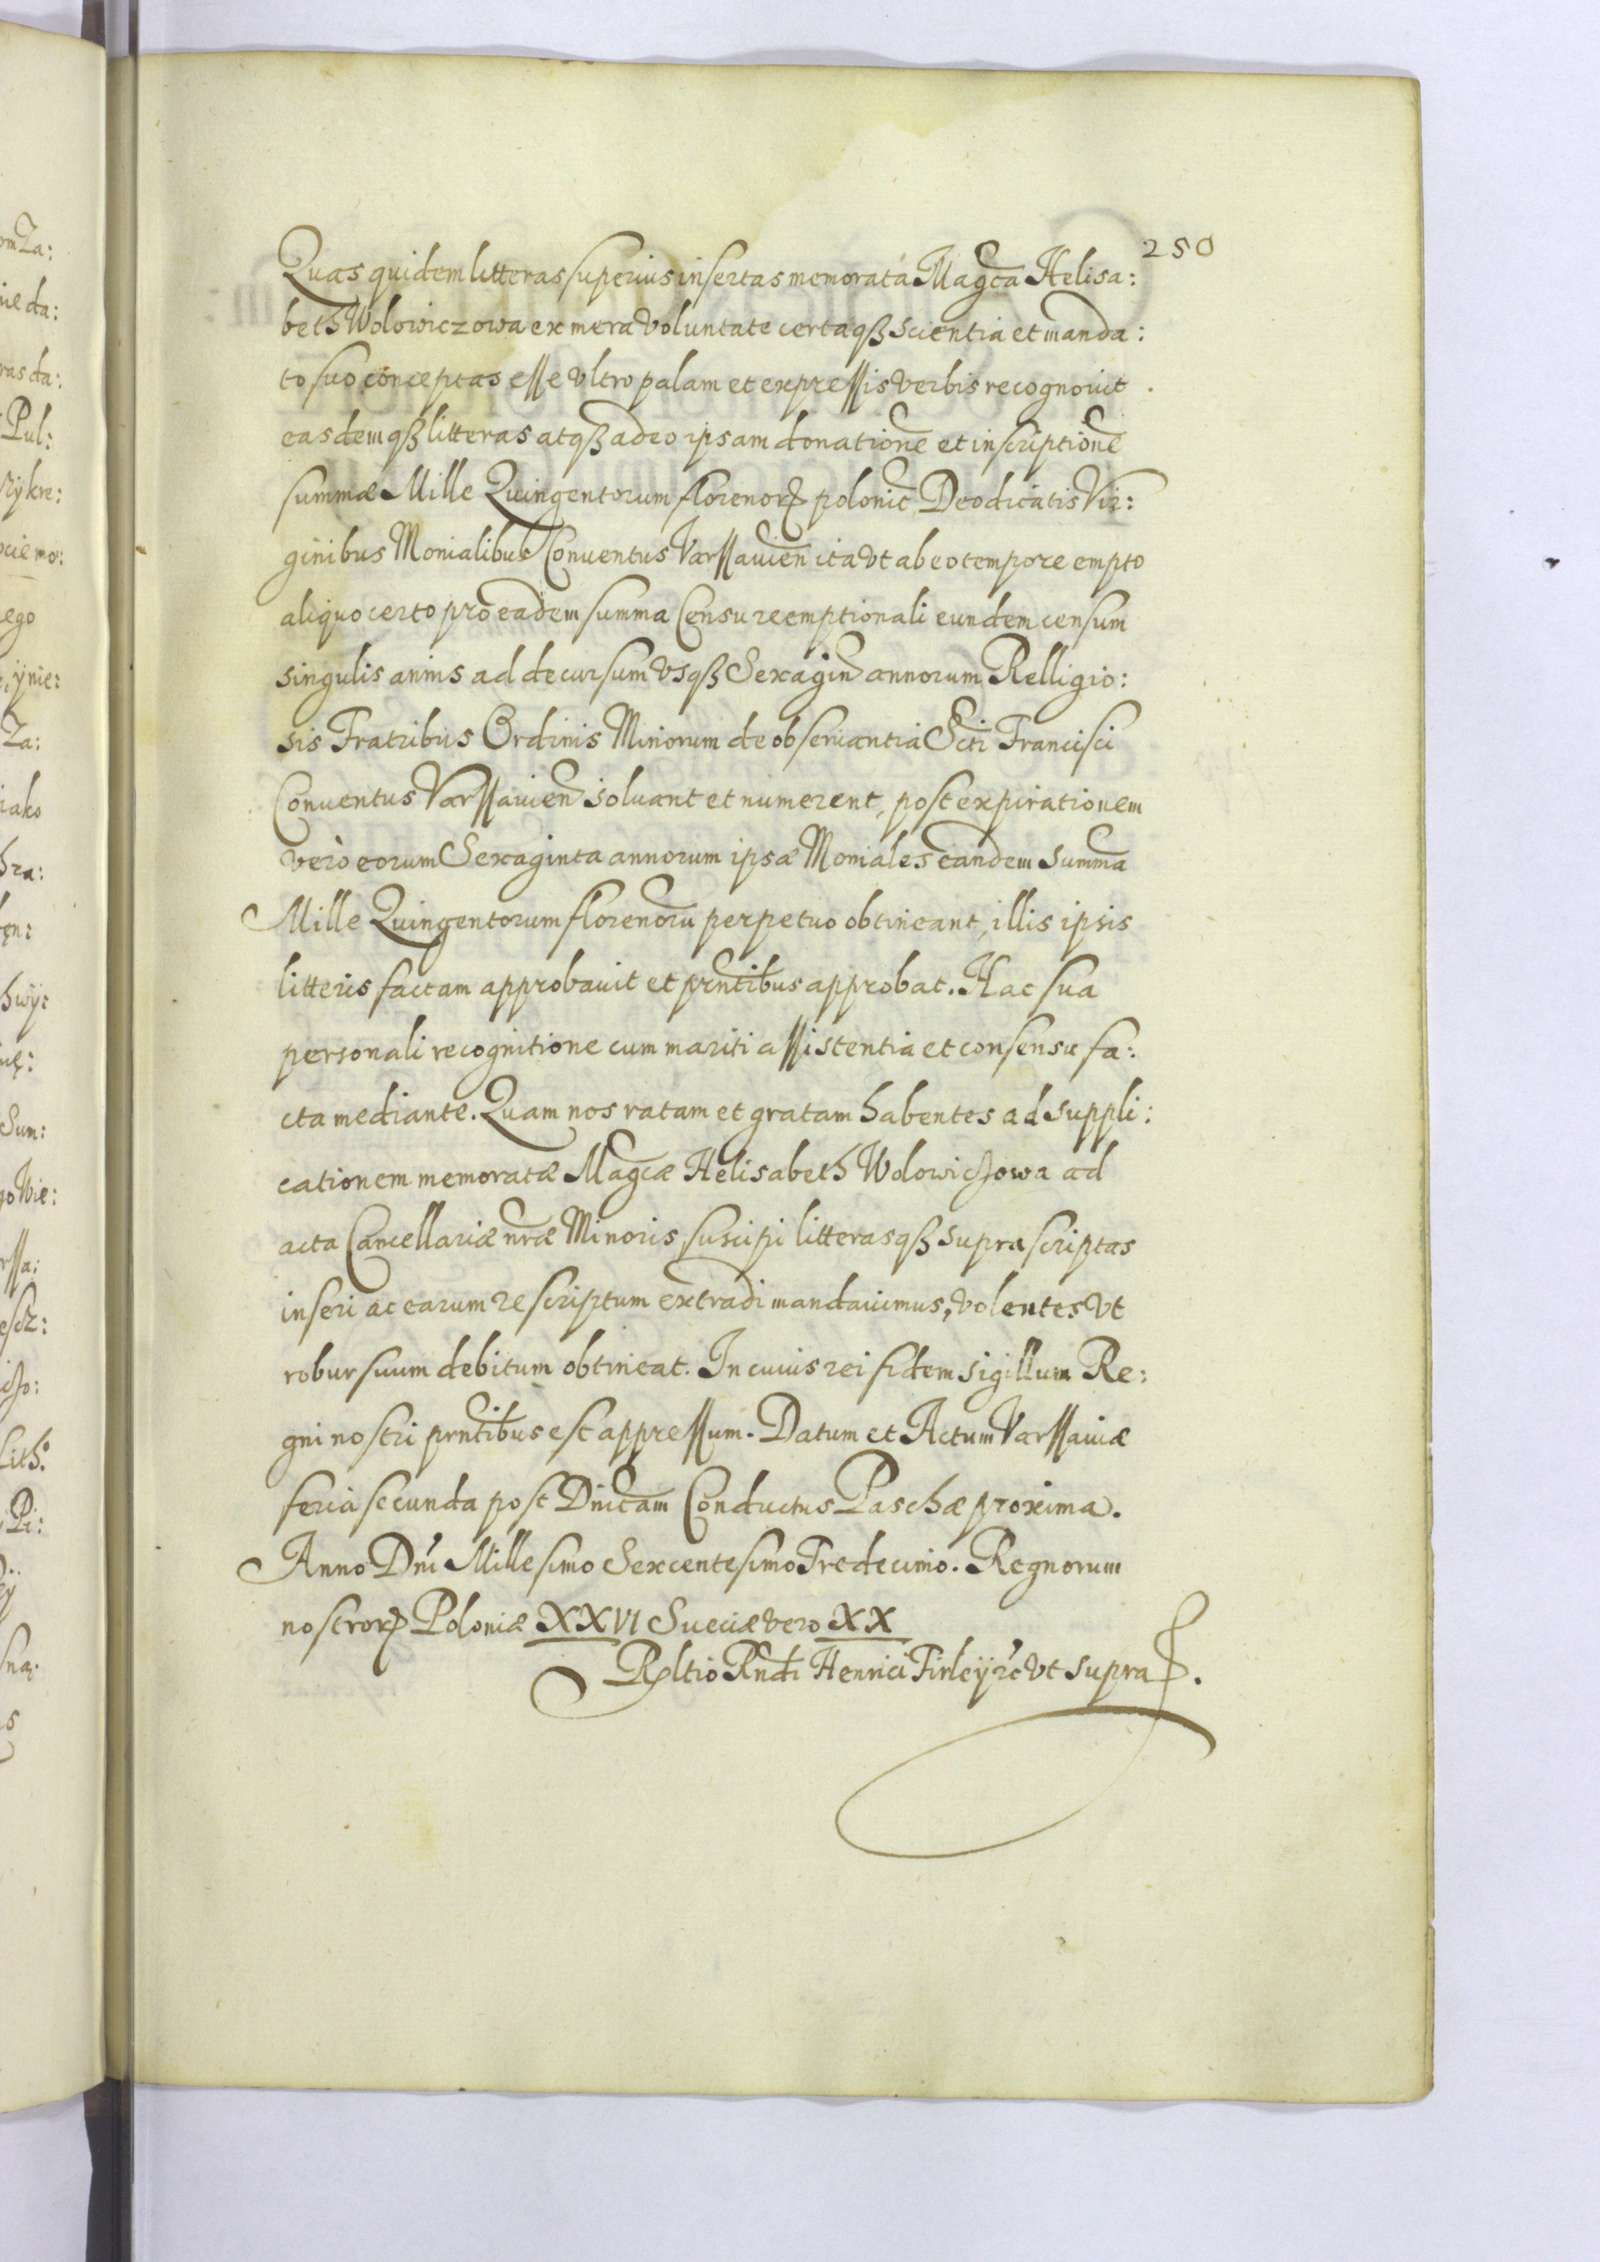 250
Quas quidem litteras superius insertas memorata Magca Helisa:
beth Wolowiczowa ex mera voluntate certaqß scientia et manda:
to suo conceptas esse vltro palam et expressis verbis recognouit.
easdemqß litteras atqß adeo ipsam donatione et inscriptione
summæ Mille Quingentorum florenorꝝ polonic Deodicatis Vir:
ginibus Monialibus Conuentus Varssauien ita vt ab eo tempore empto
aliquo certo pro eadem summa Censu reemptionali eundem censum
singulis annis ad decursum vsqß Sexagin annorum Relligio:
sis Fratribus Ordinis Minorum de obseruantia Scti Francisci
Conuentus Varssauien soluant et numerent, post expirationem
vero eorum Sexaginta annorum ipsæ Moniales eandem Summa
Mille Quingentorum florenoru perpetuo obtineant, illis ipsis
litteris factam approbauit et prntibus approbat. Hac sua
personali recognitione cum mariti assistentia et consensu fa:
cta mediante. Quam nos ratam et gratam habentes ad suppli:
cationem memoratæ Magcæ Helisabeth Wolowiczowa ad
acta Cancellariæ nræ Minoris suscipi litterasqß supra scriptas
inseri ac earum rescriptum extradi mandauimus, volentes vt
robur suum debitum obtineat. In cuius rei fidem sigillum Re:
gni nostri prntibus est appressum. Datum et Actum Varssauiæ
feria secunda post Dnicam Conductus Paschæ proxima.
Anno Dni Millesimo Sexcentesimo Tredecimo. Regnorum
nostrorꝝ Poloniæ XXVI Sueciæ vero XX
Rltio Rndi Henrici Firley rc vt supra
omza:
ras da:
Pul:
rykre:
ocie mo:
ego
ynie:
Za:
iako
hra:
Sum:
Lith:
Pi: